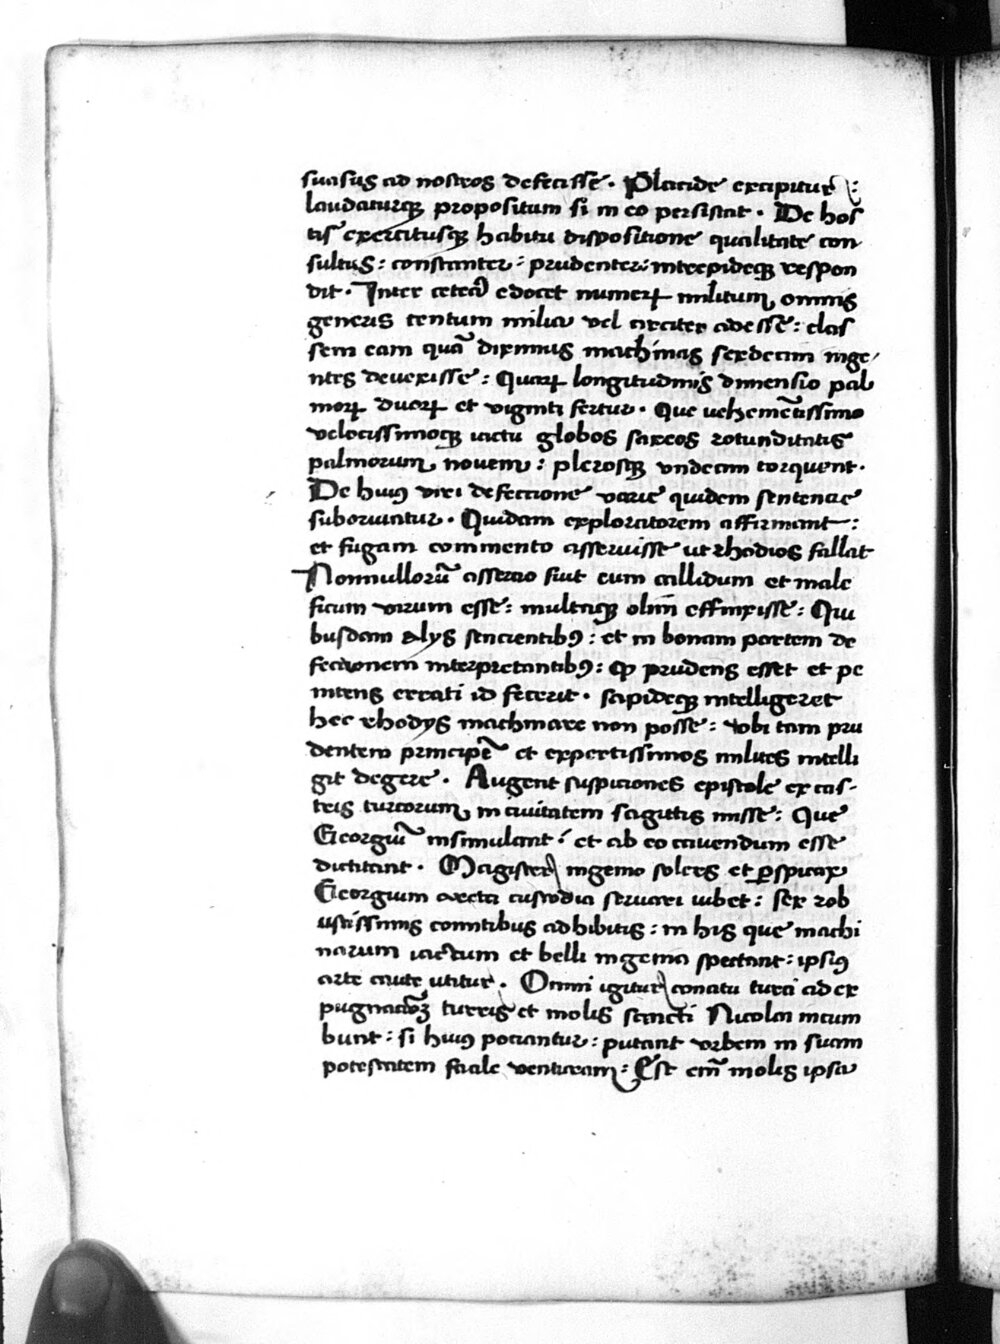 suasus ad nostros defecisse. Placide excipitur:
laudaturque propositum si in eo persistat. De hos
tis exercitusque habitu dispositione qualitate con
sultus: constanter: prudenter: intrepideque respon
dit. Inter ceterā edocet numerꝝ militum omnis
generis centum milia vel circiter adesse: clas
sem eam quā diximus machinas sexdecim inge
ntes devexisse: Quarꝝ longitudinis dimensio pal
morꝝ duorꝝ et viginti fertur. Que vehemētissimo
velocissimoque iactu globos saxeos rotunditatis
palmorum novem: plerosque undecim torquent.
De huiꝯ viri defectione varie quidem sentencie
suboriuntur. Quidam exploratorem affirmant:
et fugam commento asseruisse ut rhodios fallat
Nonnullorū assercio fuit eum callidum et male
ficum virum esse: multaque olim effinxisse: Qui
busdam alijs sencientibꝯ: et in bonam partem de
fectionem interpretantibꝯ: ꝙ prudens esset et pe
nitens errati id fecerit. sapideque intelligeret
hec rhodijs machinare non posse: ubi tam pru
dentem principē et expertissimos milites intelli
git degere. Augent suspiciones epistole ex cas-
tris turcorum in civitatem sagittis misse: Que
Georgiū insimulant: et ab eo cavendum esse
dictitant. Magister ingenio solers et ꝑspicax
Georgium arcta custodia servari iubet: sex rob
ustissimis comitibus adhibitis: in his que machi
narum iactum et belli ingenia spectant: ipsiꝯ
arte caute utitur. Omni igitur conatu turci ad ex
pugnacōꝫ turris et molis sancti Nicolai incum
bunt: si huiꝯ pociantur: putant urbem in suam
potestatem facile venturam: Est em̄ molis ipsa